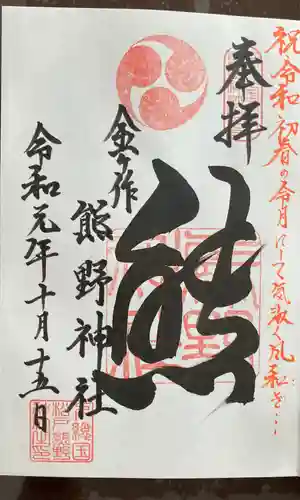 祝令和 初春の令月にして気淑く風和ぎ…
奉拝
熊
金ヶ作
熊野神社
令和元年十月十五日